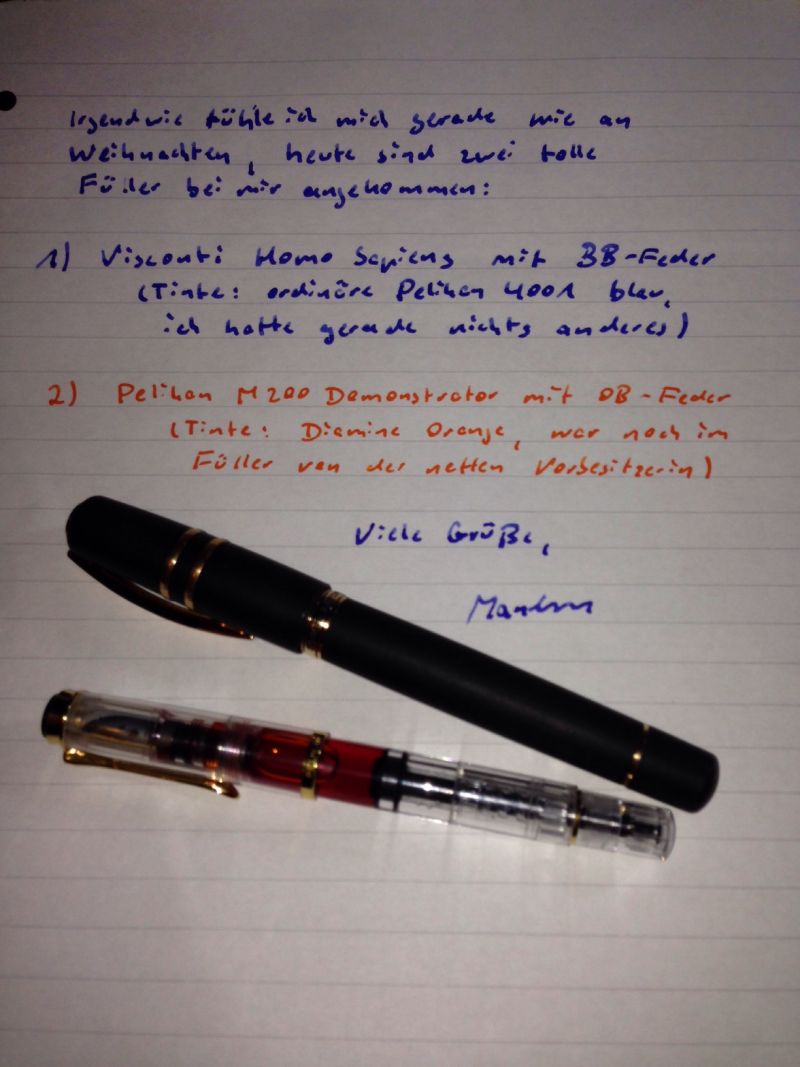 Irgendwie fühle ich mich gerade wie an
Weihnachten, heute sind zwei tolle
Füller bei mir angekommen:
1) Visconti Homo Sapiens mit BB-Feder
(Tinte: ordinäre Pelikan 4001 blau,
ich hatte gerade nichts anderes)
2) Pelikan M200 Demonstrator mit OB-Feder
(Tinte: Diamine Orange, war noch im
Füller von der netten Vorbesitzerin)
Viele Grüße,